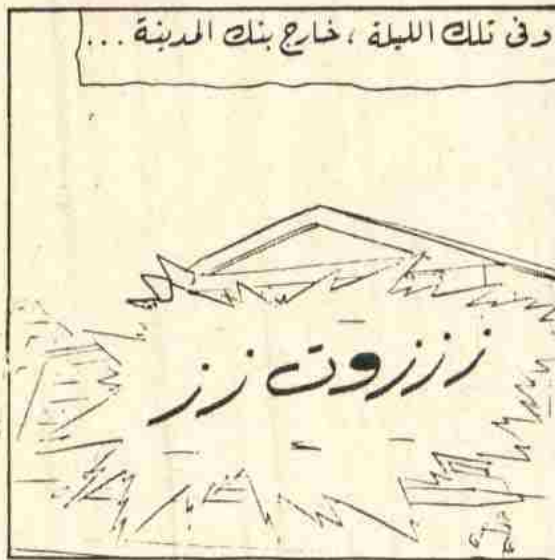 وفى تلك الليلة ، خارج بنك المدينة ...
زززوت زز